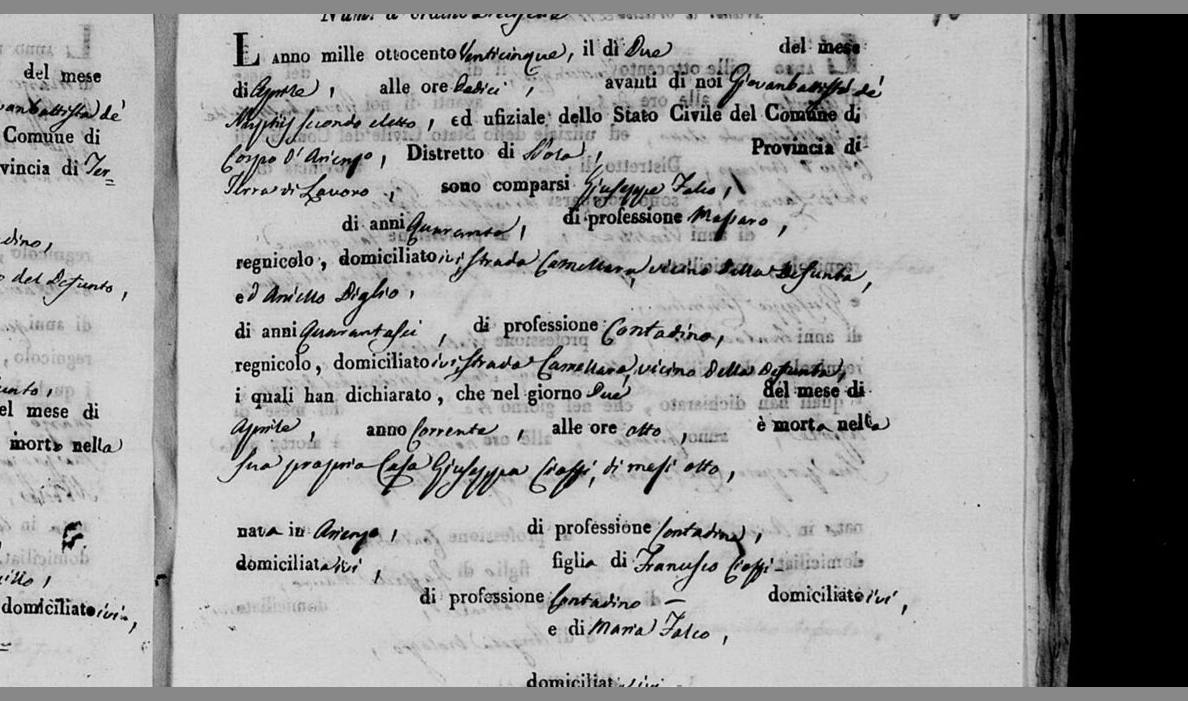 del mese
Comune di
vincia di Ter=
dino,
del Defunto,
unto,
el mese di
morto nella
domiciliato ivi,
Num. d'ordine
L'anno mille ottocento Venticinque, il di Due del mese
di Aprile, alle ore avanti di noi Giovanbattista de
secondo eletto, ed ufiziale dello Stato Civile del Comune di
Corpo d'Arienzo, Distretto di Nola, Provincia di
Terra di Lavoro, sono comparsi Giuseppe Falco,
di anni Quaranta, di professione Massaro,
regnicolo, domiciliato ivi, strada Camellara, vicino della Defunta,
ed Aniello Diglio,
di anni Quarantasei, di professione Contadino,
regnicolo, domiciliato ivi, strada Camellara, vicino della Defunta,
i quali han dichiarato, che nel giorno Due del mese di
Aprile, anno Corrente, alle ore otto, è morta nella
sua propria Casa Giuseppa Cioffi, di mesi otto,
nata in Arienzo, di professione Contadina,
domiciliata ivi, figlia di Francesco Cioffi
di professione Contadino — domiciliato ivi,
e di Maria Falco,
domiciliata ivi